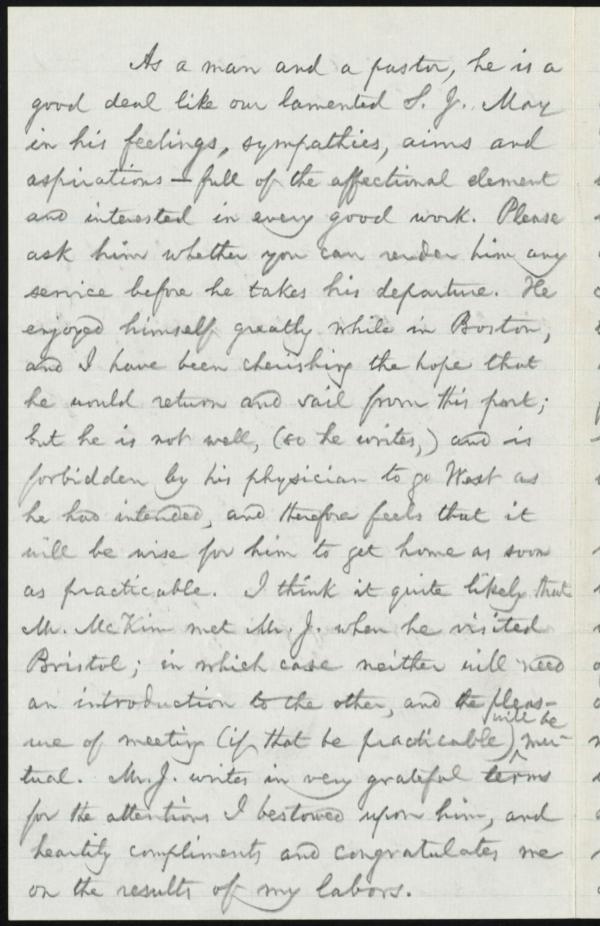 As a man and a pastor, he is a
good deal like our lamented S. J. May
in his feelings, sympathies, aims and
aspirations — full of the affectional element
and interested in every good work. Please
ask him whether you can render him any
service before he takes his departure. He
enjoyed himself greatly while in Boston,
and I have been cherishing the hope that
he would return and sail from this port;
but he is not well, (so he writes,) and is
forbidden by his physician to go West as
he had intended, and therefore feels that it
will be wise for him to get home as soon
as practicable. I think it quite likely that
Mr. McKim met Mr. J. when he visited
Bristol; in which case neither will need
an introduction to the other, and the pleas-
ure of meeting (if that be practicable) will be mu-
tual. Mr. J. writes in very grateful terms
for the attentions I bestowed upon him, and
heartily compliments and congratulates me
on the results of my labors.